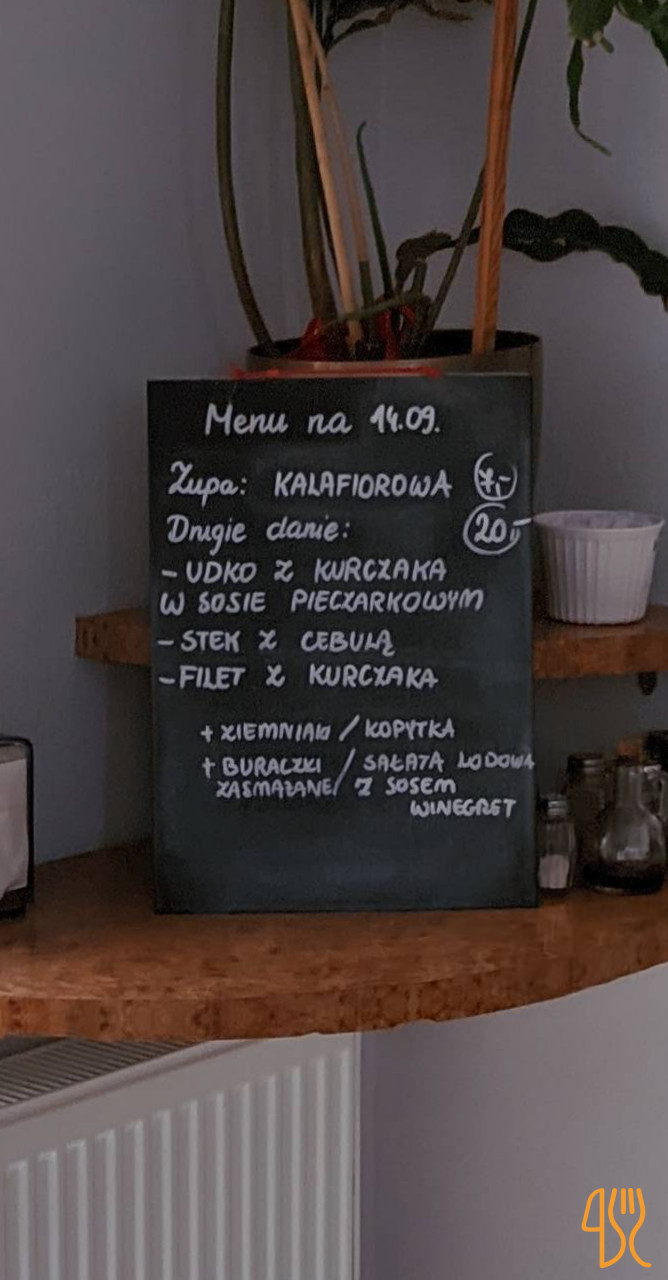 Menu na 14.09.
Zupa: KALAFIOROWA 7,-
Drugie danie: 20,-
- UDKO Z KURCZAKA
W SOSIE PIECZARKOWYM
- STEK Z CEBULĄ
- FILET Z KURCZAKA
+ ZIEMNIAKI / KOPYTKA
+ BURACZKI / SAŁATA LODOWA
ZASMAŻANE / Z SOSEM
WINEGRET